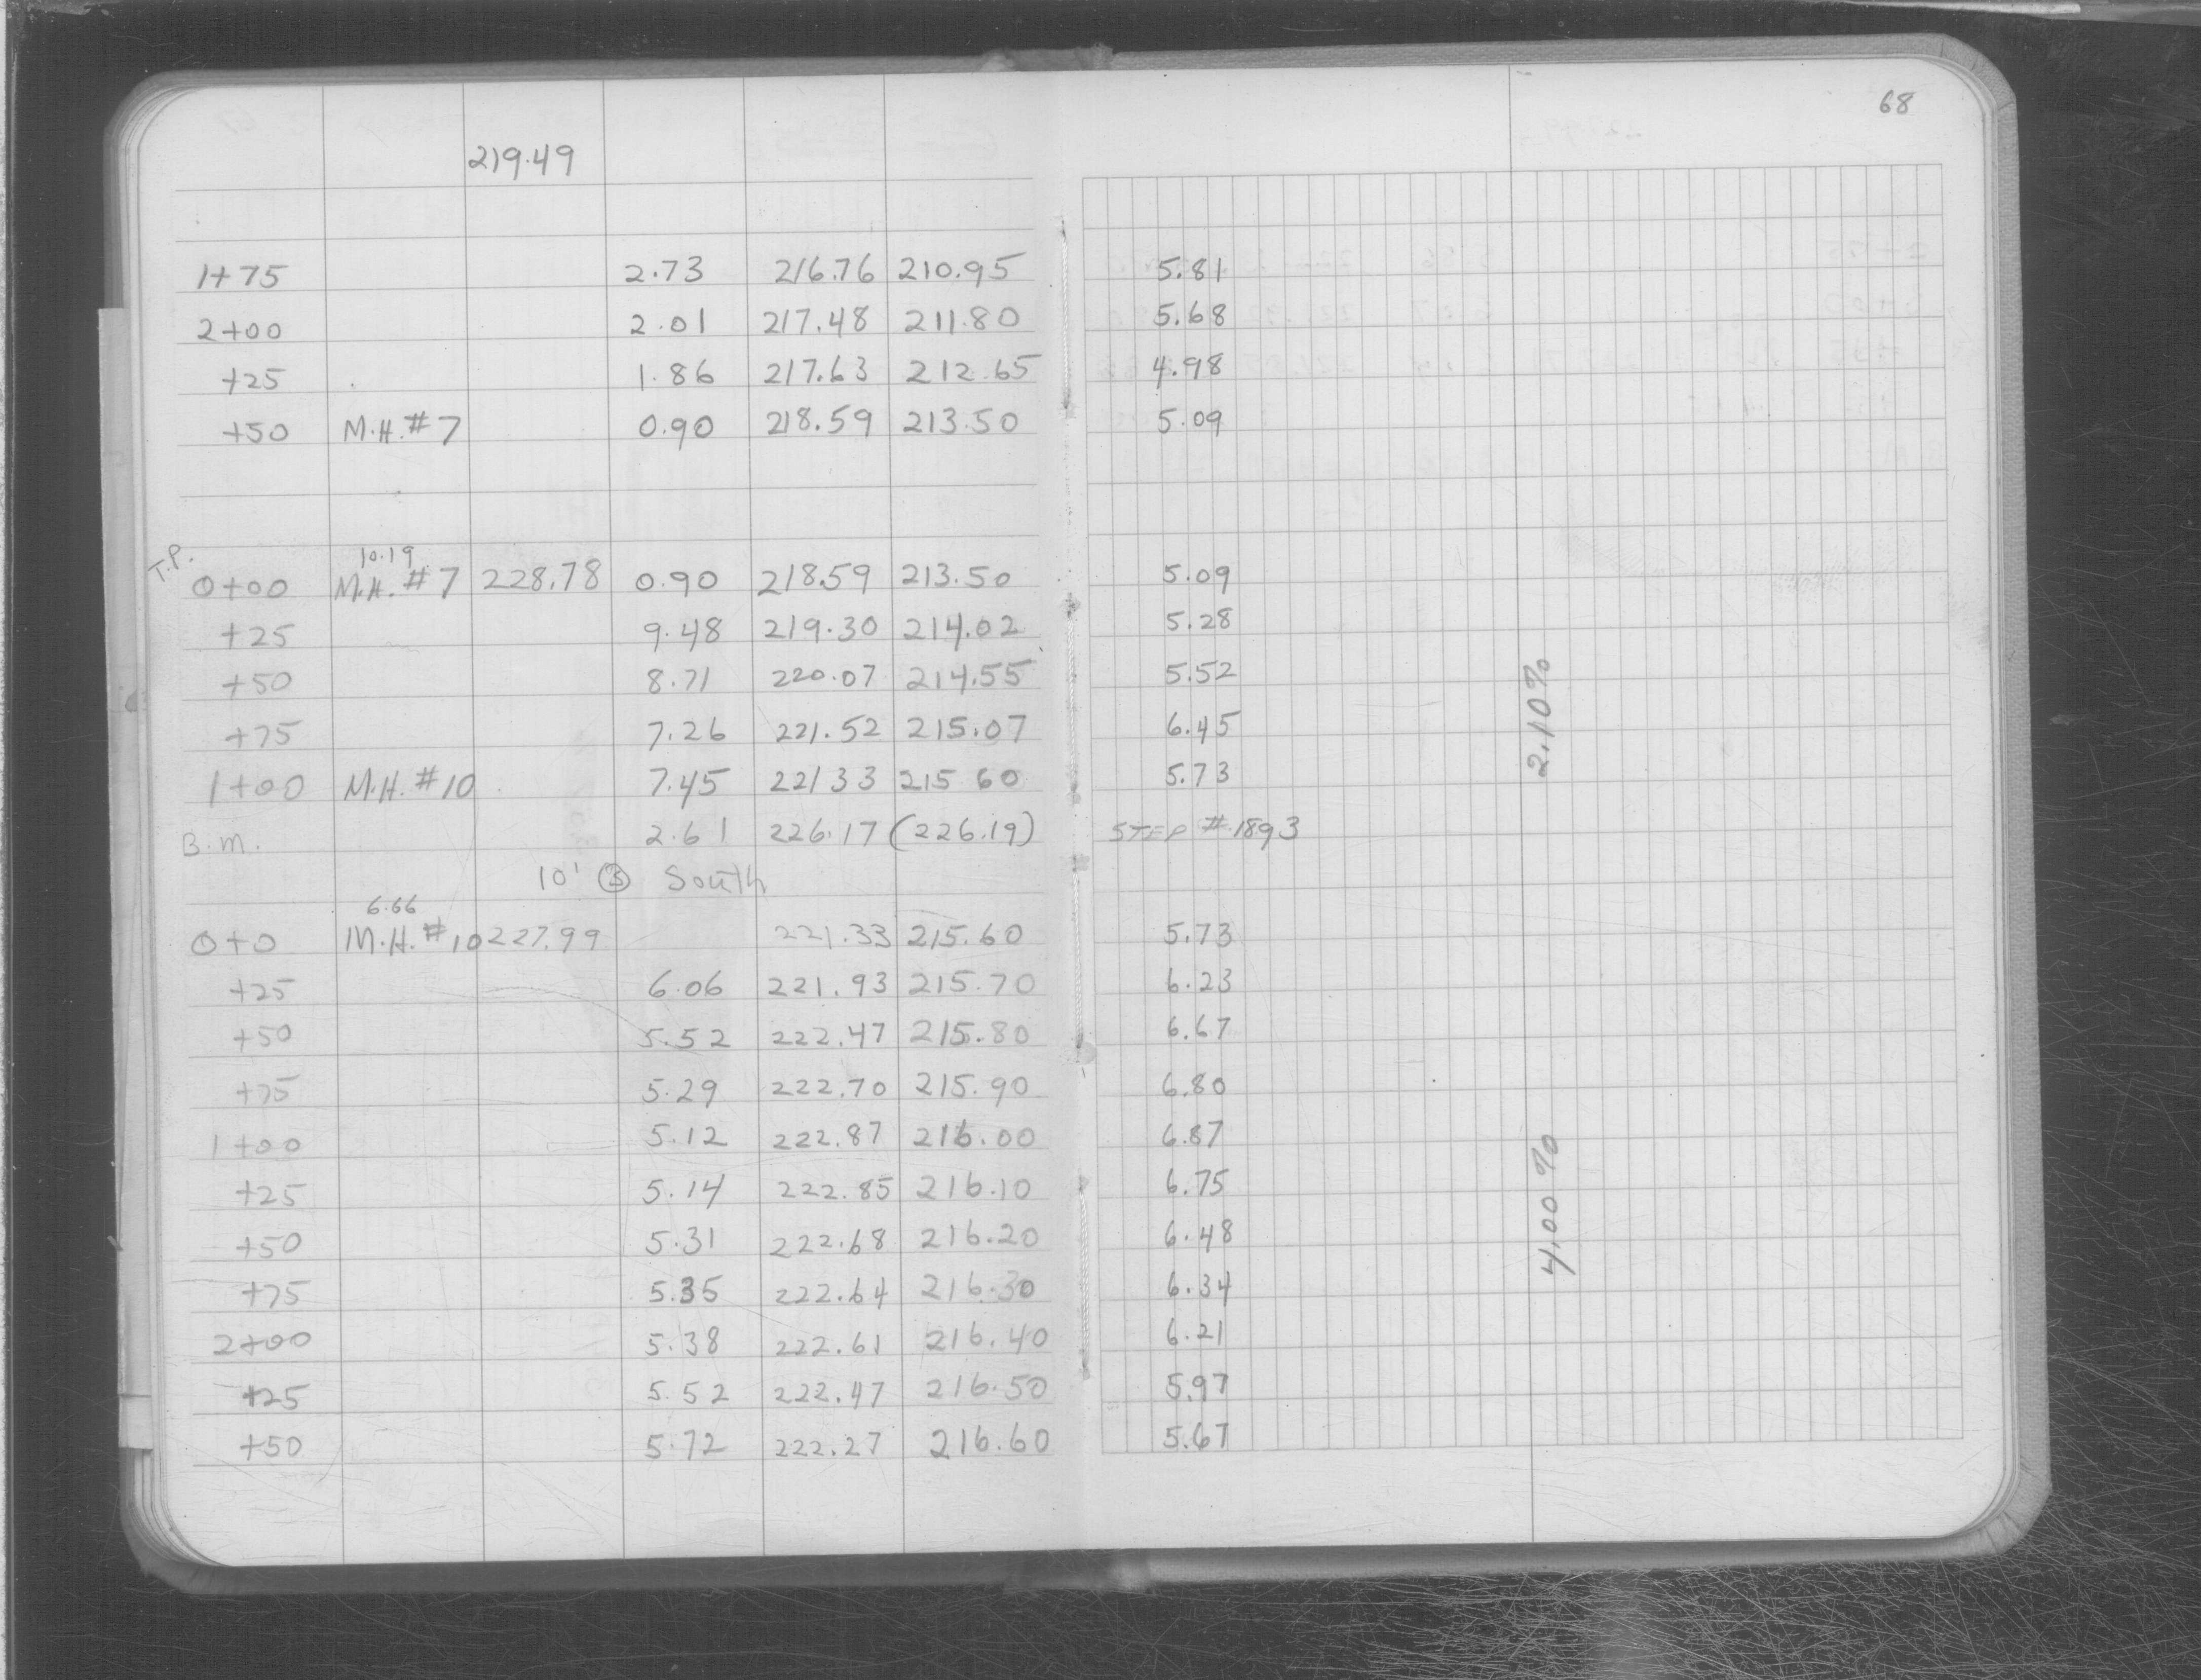 68
219.49
1+75 2.73 216.76 210.95 5.81
2+00 2.01 217.48 211.80 5.68
+25 1.86 217.63 212.65 4.98
+50 M.H.#7 0.90 218.59 213.50 5.09
T.P. 10.19
0+00 M.H.#7 228.78 0.90 218.59 213.50 5.09
+25 9.48 219.30 214.02 5.28
+50 8.71 220.07 214.55 5.52
+75 7.26 221.52 215.07 6.45
2.10%
1+00 M.H.#10 7.45 22133 215 60 5.73
B.M. 2.61 226.17 (226.19) STEP #1893
10' South
6.66
0+0 M.H.#10 227.99 221.33 215.60 5.73
+25 6.06 221.93 215.70 6.23
+50 5.52 222.47 215.80 6.67
+75 5.29 222.70 215.90 6.80
1+00 5.12 222.87 216.00 6.87
+25 5.14 222.85 216.10 6.75
4.00%
+50 5.31 222.68 216.20 6.48
+75 5.35 222.64 216.30 6.34
2+00 5.38 222.61 216.40 6.21
+25 5.52 222.47 216.50 5.97
+50 5.72 222.27 216.60 5.67